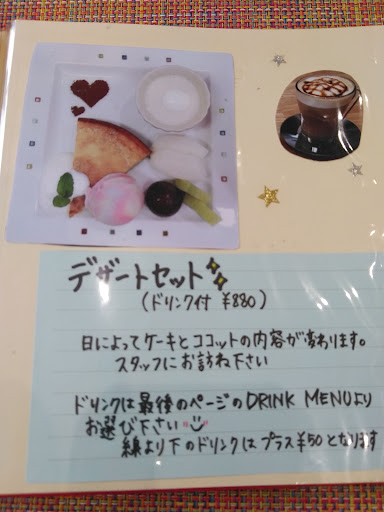 デザートセット
(ドリンク付 ¥880)
日によってケーキとココットの内容が変わります。
スタッフにお訪ね下さい
ドリンクは最後のページのDRINK MENUより
お選び下さい
線より下のドリンクはプラス¥50となります